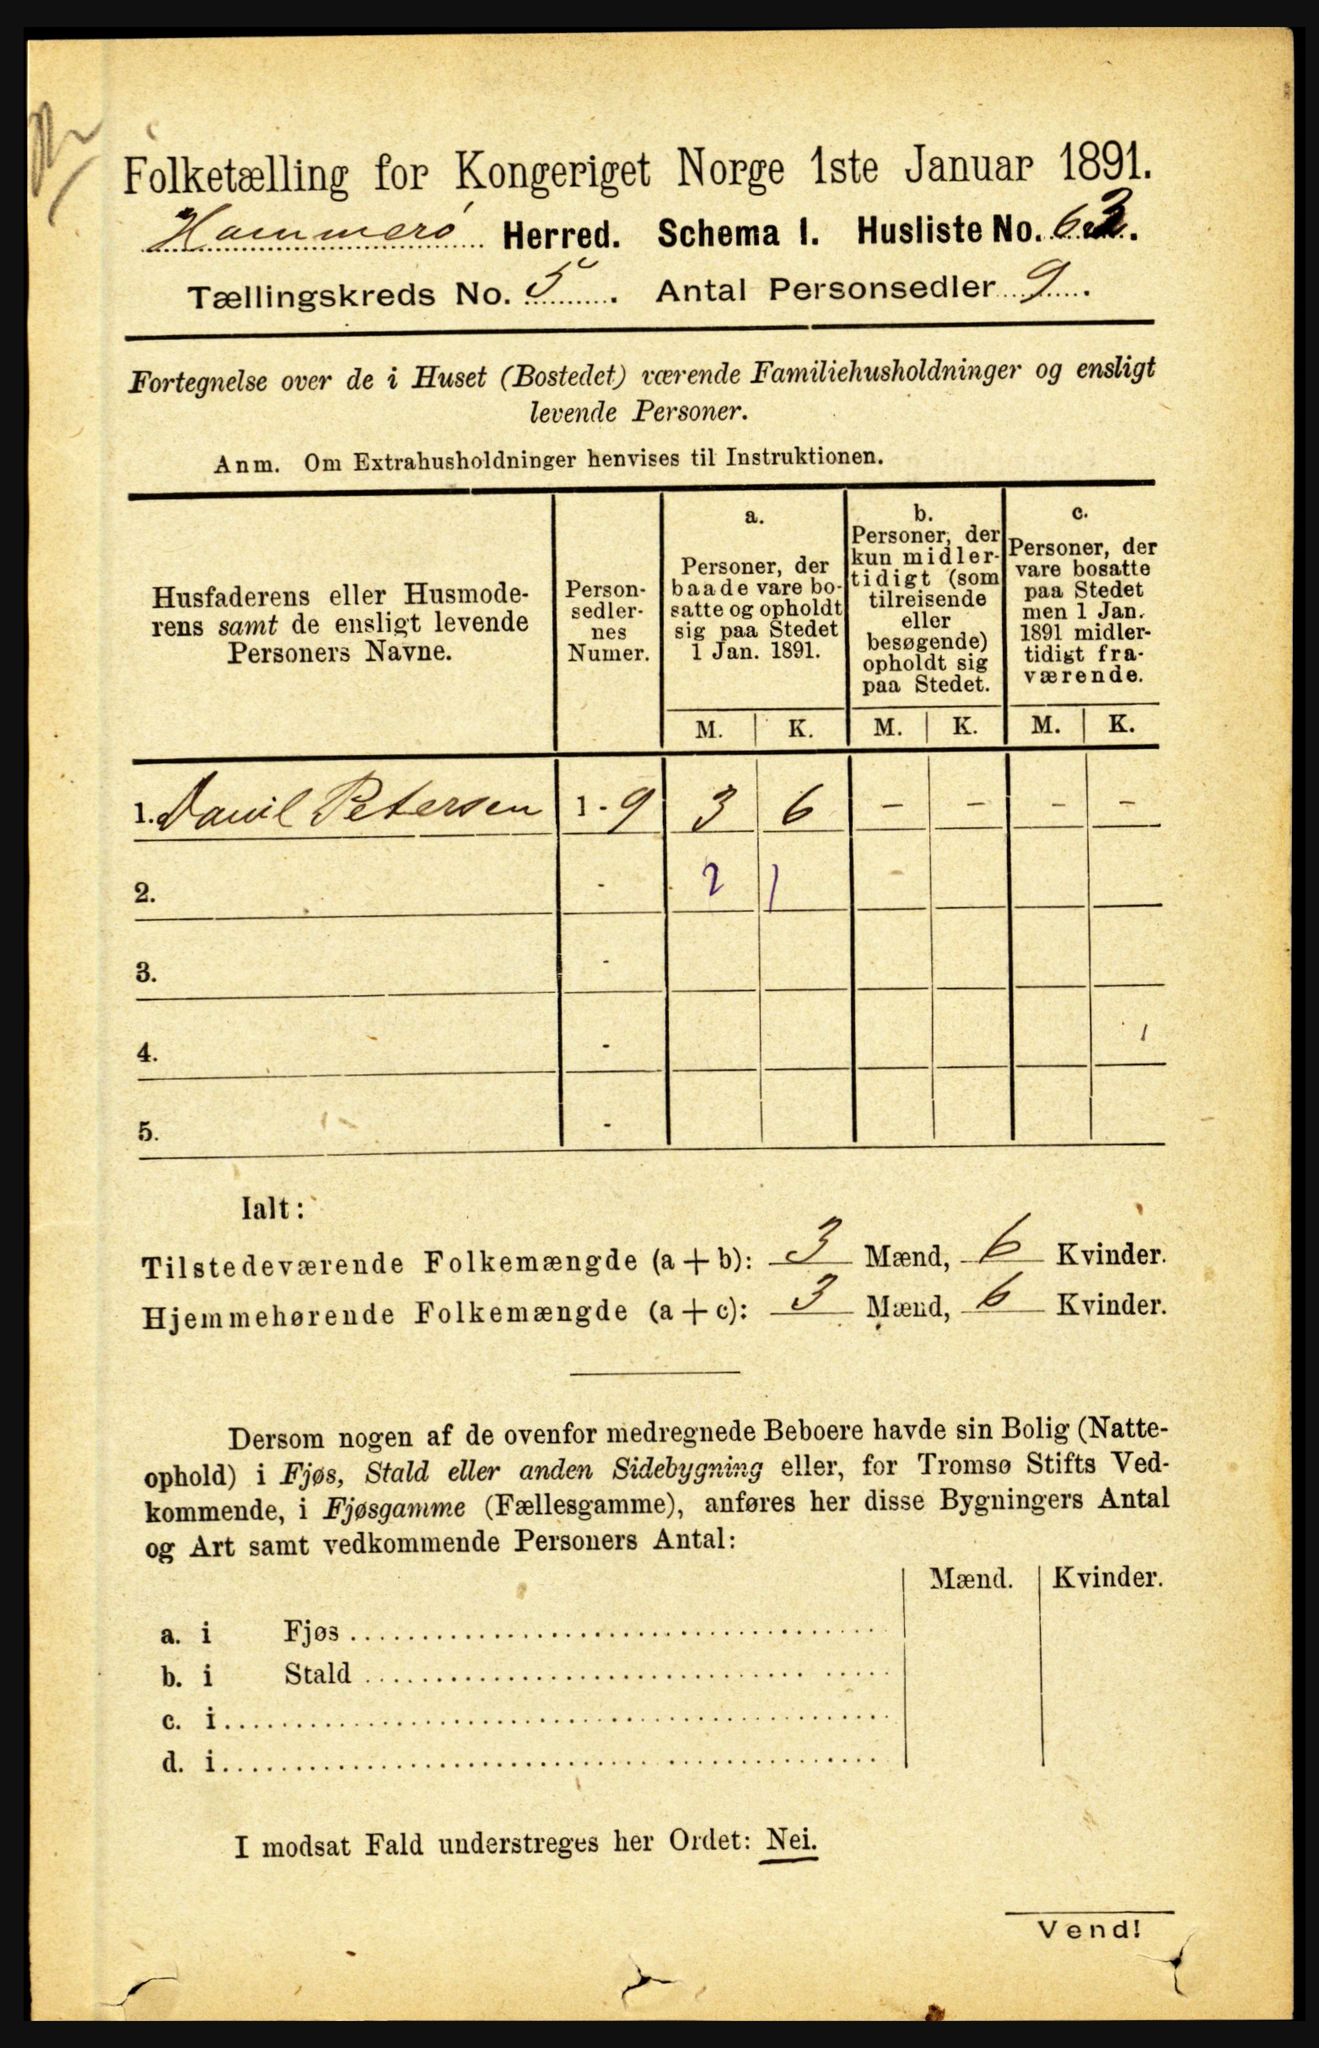 Folketælling for Kongeriget Norge 1ste Januar 1891.
Hammerø Herred. Schema I. Husliste No. 63.
Tællingskreds No. 5. Antal Personsedler 9.
Fortegnelse over de i Huset (Bostedet) værende Familiehusholdninger og ensligt
levende Personer.
Anm. Om Extrahusholdninger henvises til Instruktionen.
Husfaderens eller Husmode-
rens samt de ensligt levende
Personers Navne.
Person-
sedler-
nes
Numer.
a.
Personer, der
baade vare bo-
satte og opholdt
sig paa Stedet
1 Jan. 1891.
b.
Personer, der
kun midler-
tidigt (som
tilreisende
eller
besøgende)
opholdt sig
paa Stedet.
c.
Personer, der
vare bosatte
paa Stedet
men 1 Jan.
1891 midler-
tidigt fra-
værende.
M. K. M. K. M. K.
1. Danil Petersen 1-9 3 6 - - - -
2. - 2 1
3. -
4. -
5. -
Ialt:
Tilstedeværende Folkemængde (a + b): 3 Mænd, 6 Kvinder.
Hjemmehørende Folkemængde (a + c): 3 Mænd, 6 Kvinder.
Dersom nogen af de ovenfor medregnede Beboere havde sin Bolig (Natte-
ophold) i Fjøs, Stald eller anden Sidebygning eller, for Tromsø Stifts Ved-
kommende, i Fjøsgamme (Fællesgamme), anføres her disse Bygningers Antal
og Art samt vedkommende Personers Antal:
Mænd. Kvinder.
a. i Fjøs
b. i Stald
c. i
d. i
I modsat Fald understreges her Ordet: Nei.
Vend!